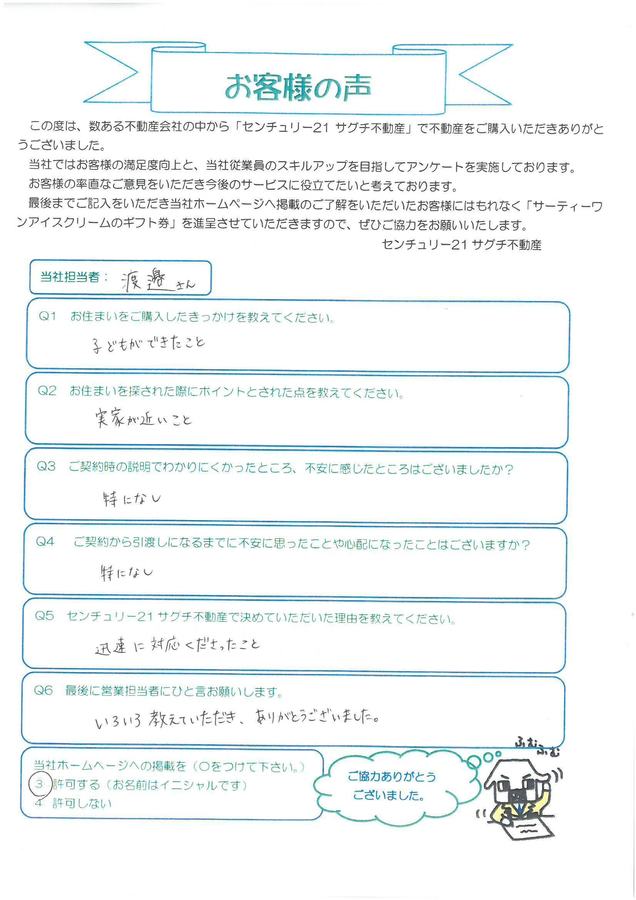 お客様の声
この度は、数ある不動産会社の中から「センチュリー21 サグチ不動産」で不動産をご購入いただきありがと
うございました。
当社ではお客様の満足度向上と、当社従業員のスキルアップを目指してアンケートを実施しております。
お客様の率直なご意見をいただき今後のサービスに役立てたいと考えております。
最後までご記入をいただき当社ホームページへ掲載のご了解をいただいたお客様にはもれなく「サーティーワ
ンアイスクリームのギフト券」を進呈させていただきますので、ぜひご協力をお願いいたします。
センチュリー21 サグチ不動産
当社担当者： 渡邉さん
Q1 お住まいをご購入したきっかけを教えてください。
子どもができたこと
Q2 お住まいを探された際にポイントとされた点を教えてください。
実家が近いこと
Q3 ご契約時の説明でわかりにくかったところ、不安に感じたところはございましたか？
特になし
Q4 ご契約から引渡しになるまでに不安に思ったことや心配になったことはございますか？
特になし
Q5 センチュリー21 サグチ不動産で決めていただいた理由を教えてください。
迅速に対応くださったこと
Q6 最後に営業担当者にひと言お願いします。
いろいろ教えていただき、ありがとうございました。
当社ホームページへの掲載を（〇をつけて下さい。）
3 許可する（お名前はイニシャルです）
4 許可しない
ご協力ありがとう
ございました。
ふむふむ